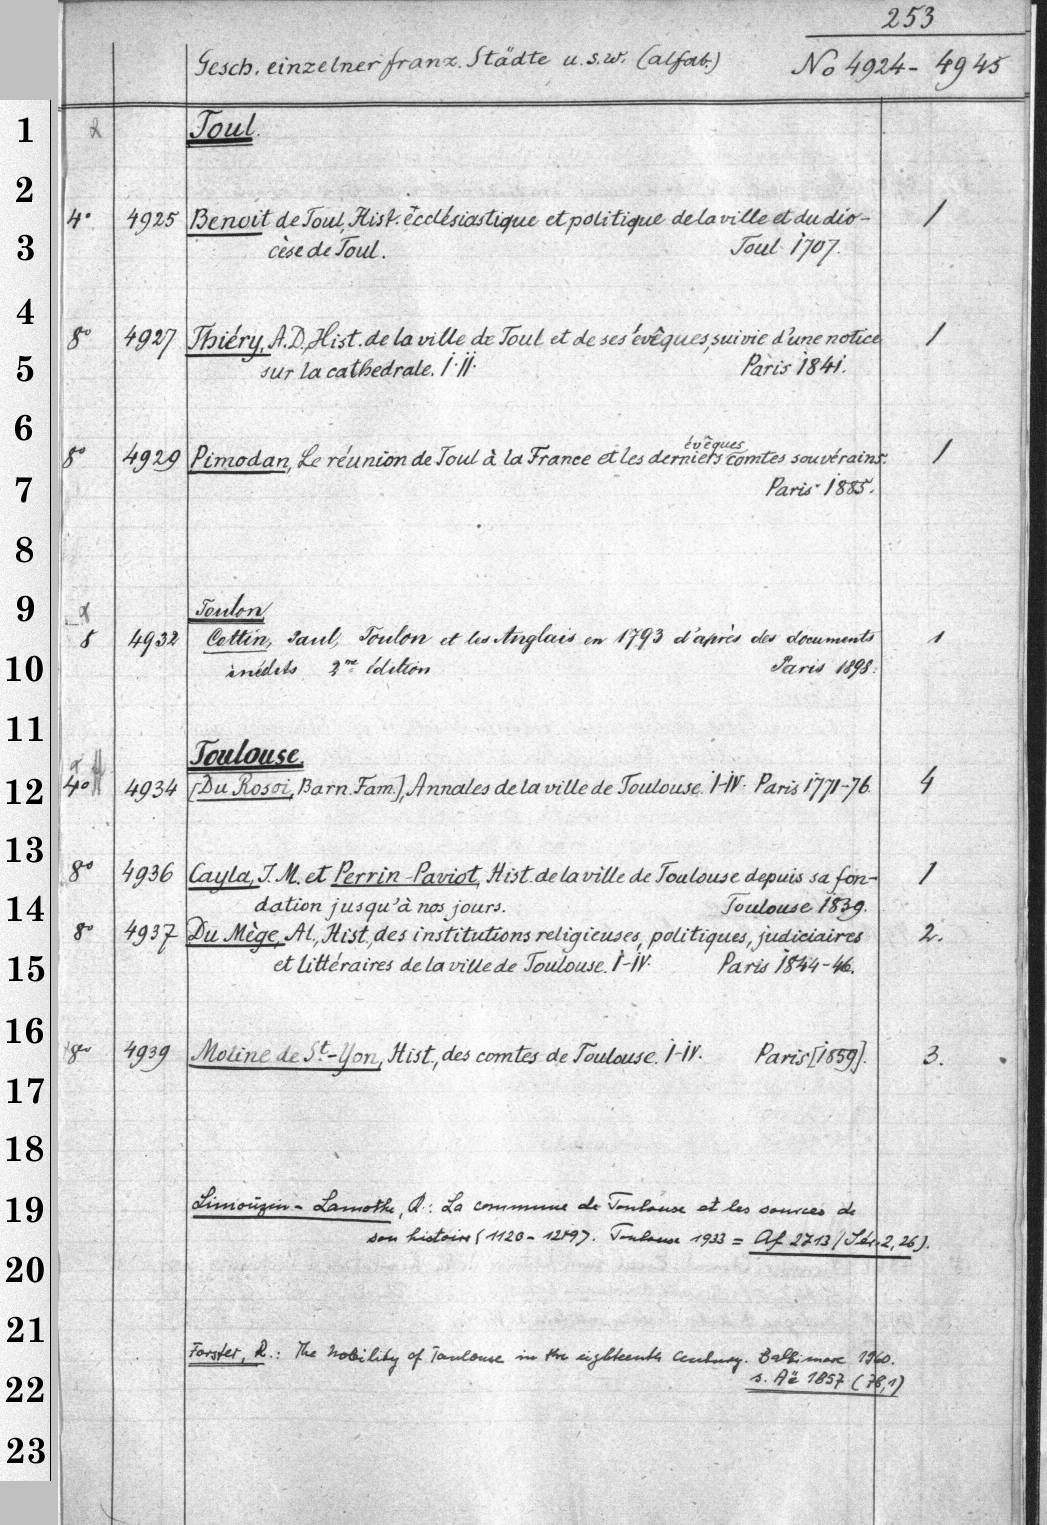 253
Gesch. einzelner franz. Städte u.s.w. (alfab.) No 4924-4945
1 Toul.
2
4° 4925 Benoit de Toul, Hist. ecclésiastique et politique de la ville et du dio- 1
3 cèse de Toul. Toul 1707.
4
8° 4927 Thiéry, A.D., Hist. de la ville de Toul et de ses évêques, suivie d'une notice 1
5 sur la cathedrale. I.II. Paris 1841.
6
évêques
8° 4929 Pimodan, Le réunion de Toul à la France et les derniers comtes souvérains. 1
7 Paris 1885.
8
9 Toulon
8 4932 Cottin, Paul, Toulon et les Anglais en 1793 d'après des documents 1
10 inédits 2me édition Paris 1898.
11
Toulouse.
12 4° 4934 [Du Rosoi, Barn. Fam.], Annales de la ville de Toulouse. I-IV. Paris 1771-76. 4
13
8° 4936 Cayla, J.M. et Perrin-Paviot, Hist. de la ville de Toulouse depuis sa fon- 1
14 dation jusqu'à nos jours. Toulouse 1839.
8° 4937 Du Mège, Al., Hist. des institutions religieuses, politiques, judiciaires 2.
15 et littéraires de la ville de Toulouse. I-IV. Paris 1844-46.
16
8° 4939 Moline de St-Yon, Hist. des comtes de Toulouse. I-IV. Paris [1859]. 3.
17
18
19 Limouzin-Lamothe, R.: La commune de Toulouse et les sources de
son histoire (1120-1249). Toulouse 1933 = Af 2713 (Sér. 2, 26).
20
21
Forster, R.: The Nobility of Toulouse in the eighteenth Century. Baltimore 1960.
22 s. Aë 1857 (78,1)
23